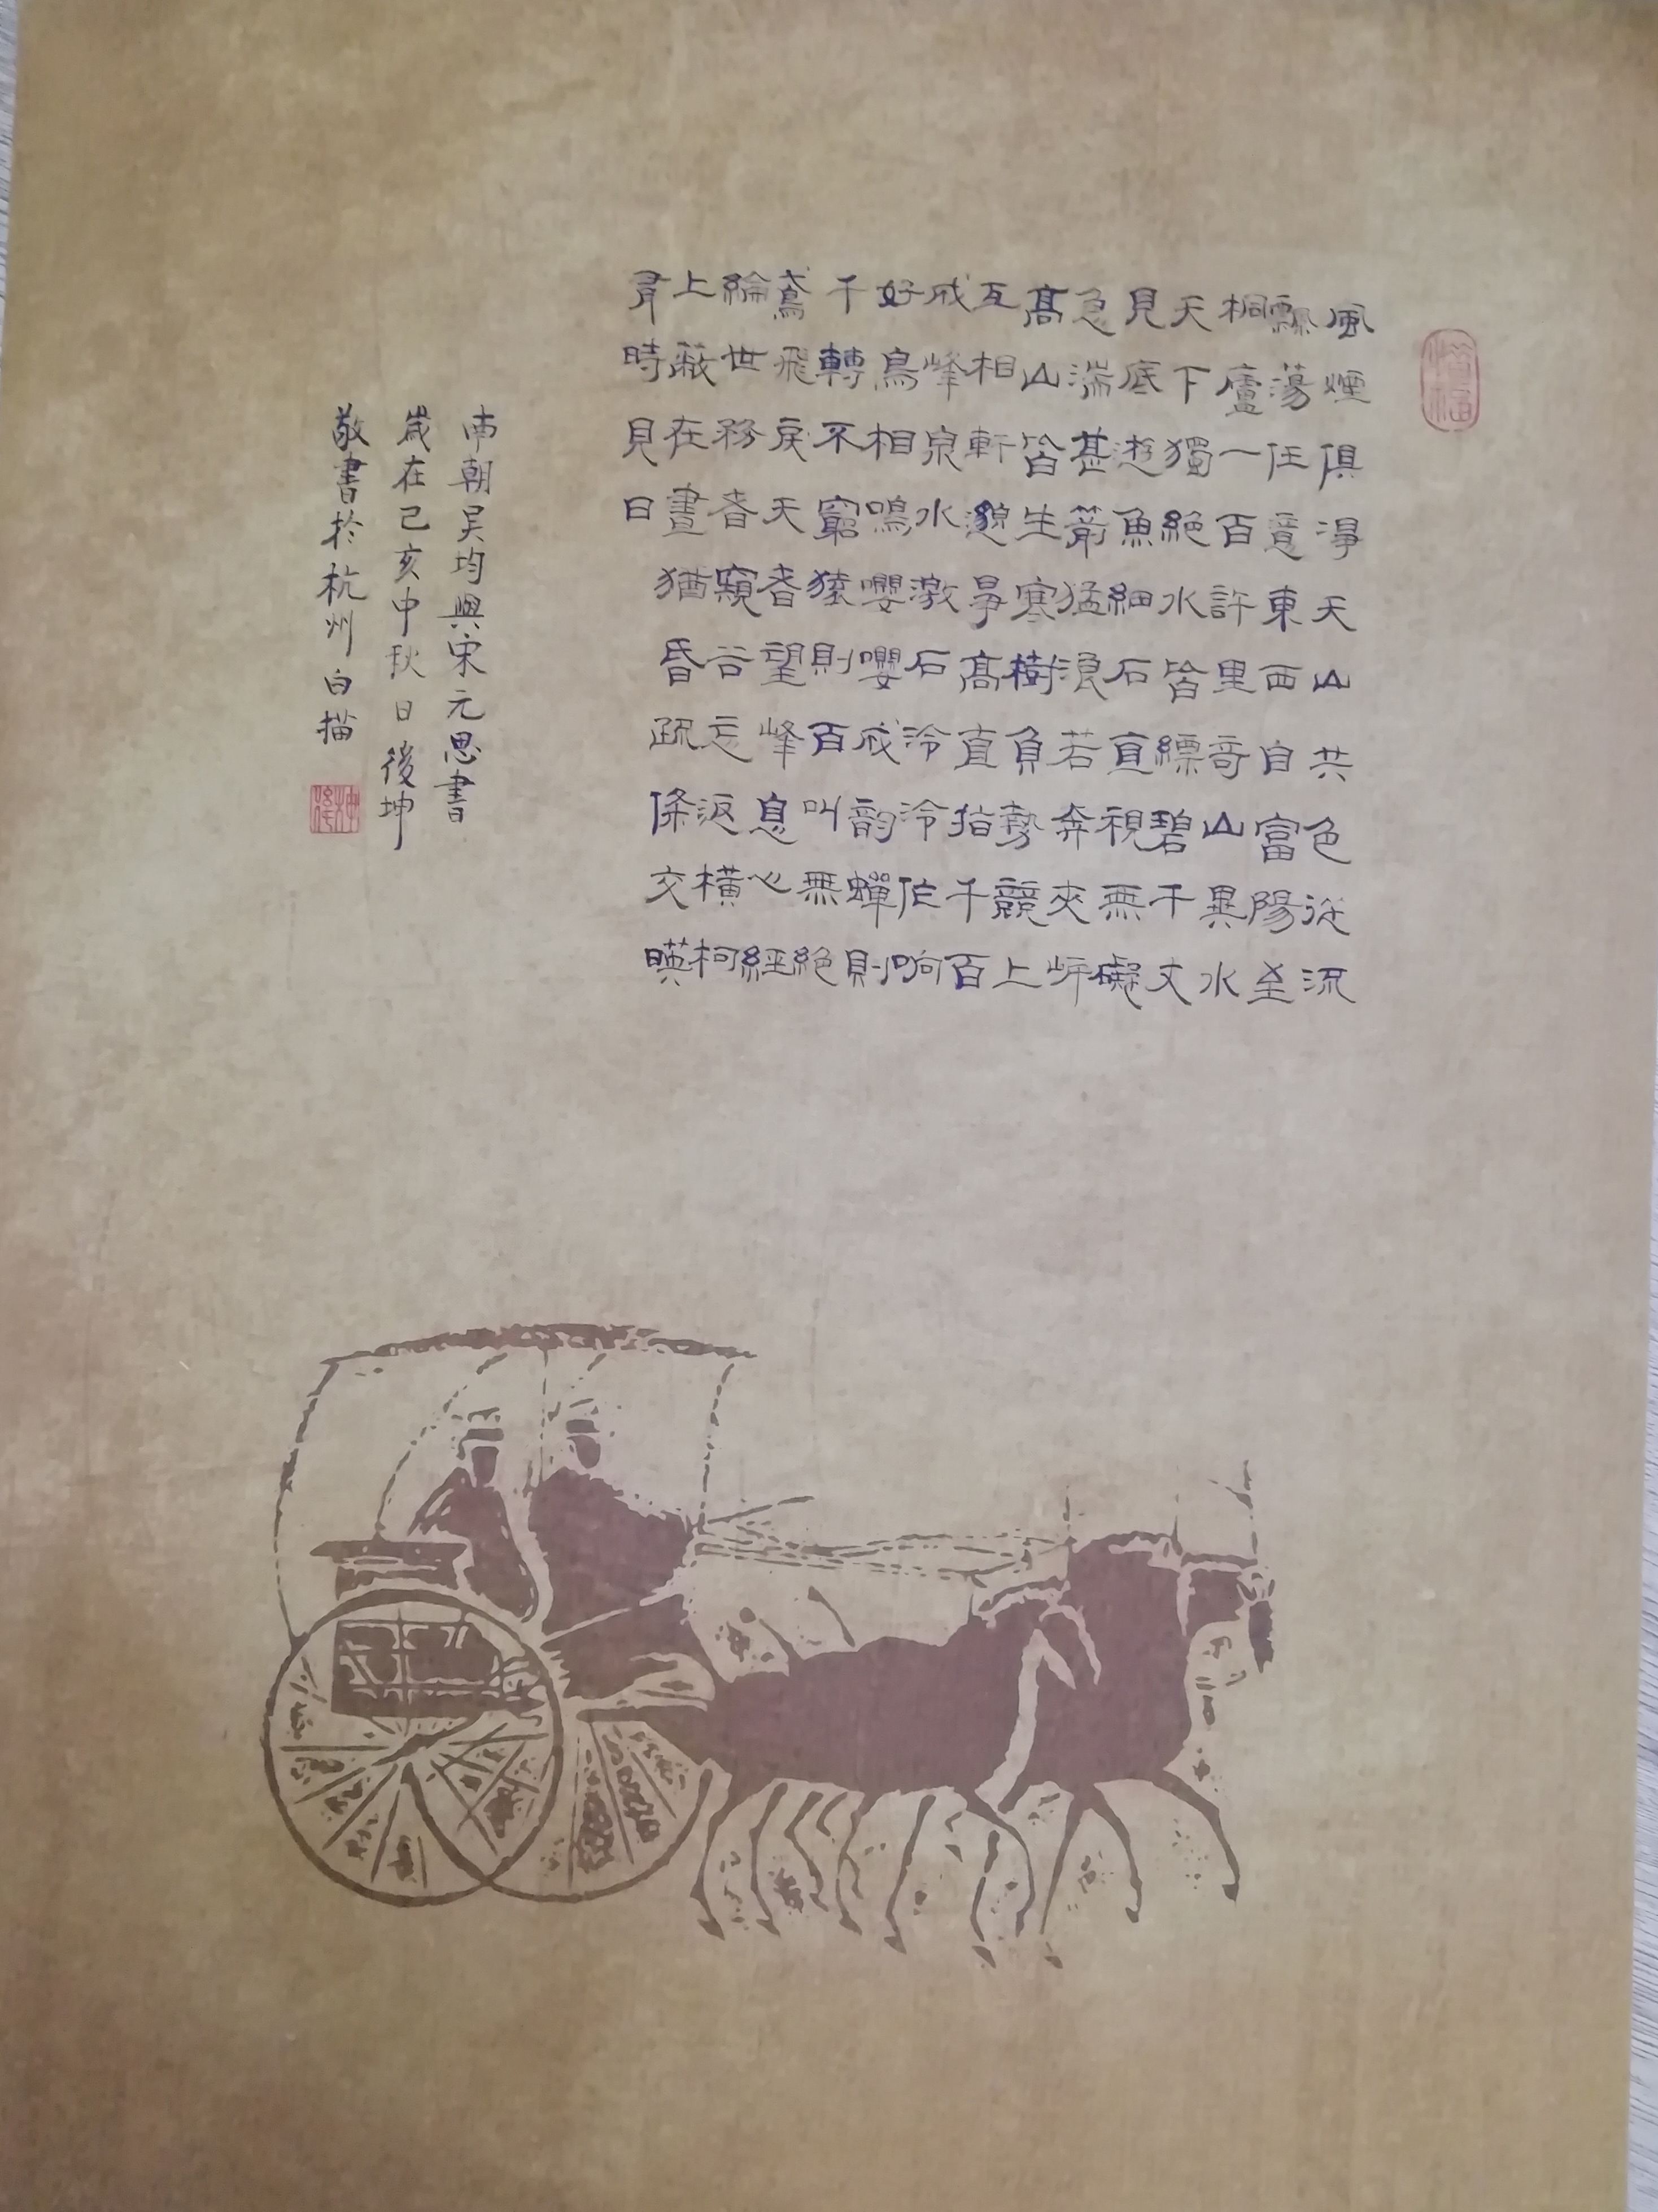 風煙俱淨天山共色從流
飄蕩任意東西自富陽至
桐廬一百許里奇山異水
天下獨絕水皆縹碧千丈
見底遊魚細石直視無礙
急湍甚箭猛浪若奔夾岸
高山皆生寒樹負勢競上
互相軒邈爭高直指千百
成峰泉水激石泠泠作响
好鳥相鳴嚶嚶成韵蟬則
千轉不窮猿則百叫無絕
鳶飛戾天者望峰息心經
綸世務者窺谷忘返橫柯
上蔽在晝猶昏疏條交暎
有時見日
南朝吴均與宋元思書
歲在己亥中秋日後坤
敬書於杭州白描